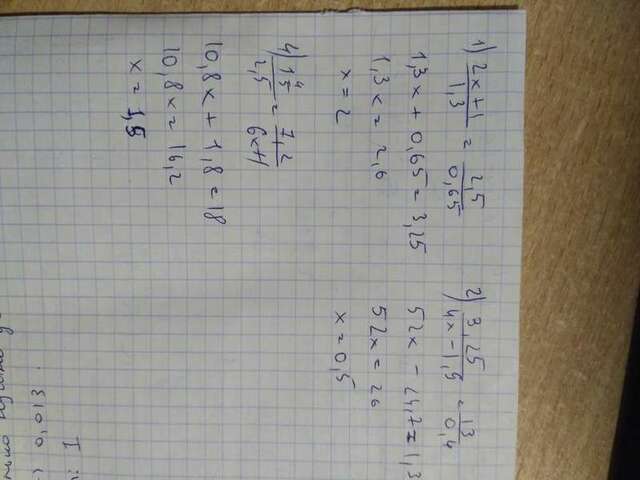 1) (2x+1)/1,3 = 2,5/0,65
1,3x + 0,65 = 3,25
1,3x = 2,6
x = 2
2) 3,25/(4x-1,9) = 13/0,4
52x - 24,7 = 1,3
52x = 26
x = 0,5
4) 1 4/5/2,5 = 7,2/(6x+1)
10,8x + 1,8 = 18
10,8x = 16,2
x = 1,5
I
0,013